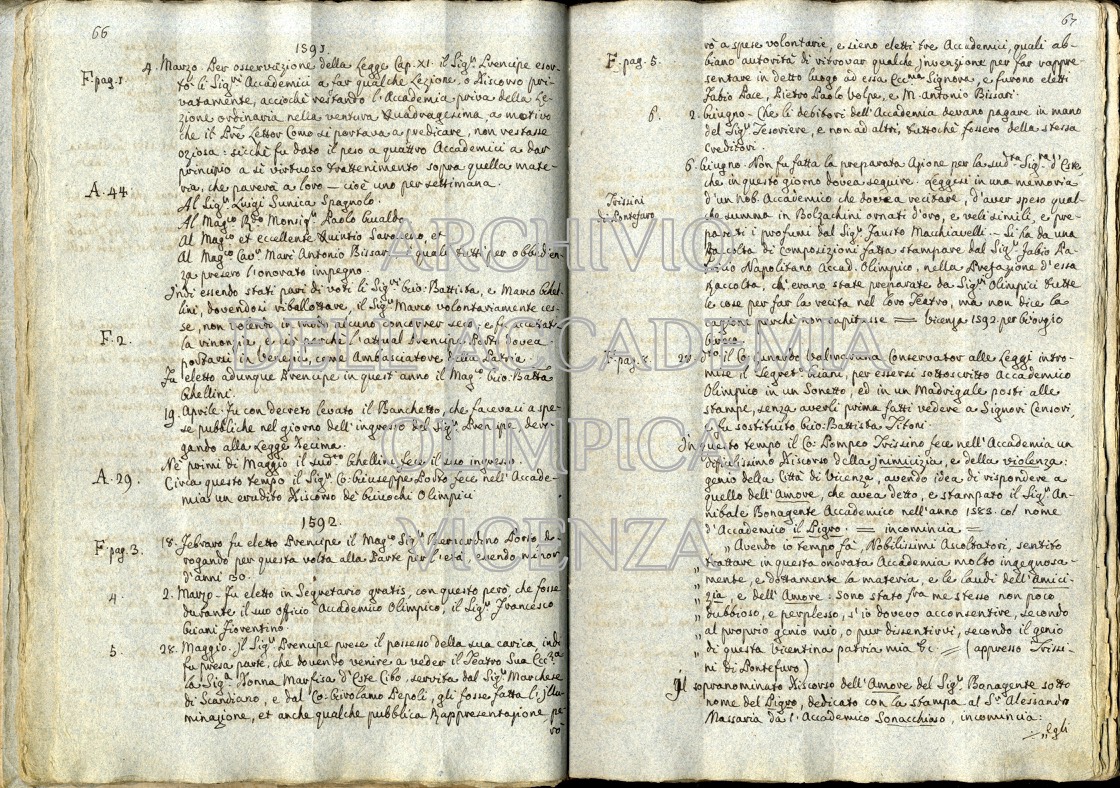 66
1591.
F. pag. 1
4. Marzo. Per osservazione della Legge Cap. XI. il Sig.r Prencipe esor-
tò li Sig.ri Accademici a far qualche Lezione, o Discorso pri-
vatamente, acciochè restando l'Accademia priva della Le-
zione ordinaria nella ventura Quadragesima, a motivo
che il Lettor Como si portava a predicare, non restasse
oziosa: sicchè fu dato il peso a quattro Accademici a dar
principio a sì virtuoso trattenimento sopra quella mate-
ria, che parerà a loro — cioè uno per settimana.
A. 44.
Al Sig.r Luigi Sunica Spagnolo.
Al Mag.co R.do Monsig.r Paolo Gualdo
Al Mag.co et eccellente Quintio Saraceno, et
Al Mag.co Cav.r Marc Antonio Bissari quali tutti per obbedien-
za presero l'onorato impegno.
Indi essendo stati pari di voti li Sig.ri Gio: Battista, e Marco Ghel-
lini, dovendosi riballottare, il Sig.r Marco volontariamente ces-
se, non volendo in modo alcuno concorrer seco, e fu accettata
F. 2.
la rinonzia, e ciò perchè l'attual Prencipe Porto dovea
portarsi in Venezia, come Ambasciatore della Patria.
Fu eletto adunque Prencipe in quest'anno il Mag.co Gio: Batt.a
Ghellini.
19. Aprile. Fu con decreto levato il Banchetto, che facevasi a spe-
se pubbliche nel giorno dell'ingresso del Sig.r Prencipe, dero-
gando alla Legge Decima.
Ne' primi di Maggio il sud.to Ghellini fece il suo ingresso.
A. 29.
Circa questo tempo il Sig.r Co: Giuseppe Porto fece nell'Accade-
mia un erudito Discorso de' Giuochi Olimpici
1592.
F. pag. 3.
18. Febraro fu eletto Prencipe il Mag.co Sig.r Bericardino Porto de-
rogando per questa volta alla Parte per l'età, essendo minor
d'anni 30.
4.
2. Marzo. Fu eletto in Segretario gratis, con questo però che fosse
durante il suo officio Accademico Olimpico, il Sig.r Francesco
Griani Fiorentino.
5.
28. Maggio. Il Sig.r Prencipe prese il possesso della sua carica, indi
fu presa parte, che dovendo venire a veder il Teatro Sua Ecc.za
la Sig.a Donna Marfisa d'Este Cibo, servita dal Sig.r Marchese
di Scandiano, e dal Co: Girolamo Pepoli, gli fosse fatta l'Illu-
minazione, et anche qualche pubblica Rappresentazione pe-
rò
67
F. pag. 5.
rò a spese volontarie, e sieno eletti tre Accademici, quali ab-
biano autorità di ritrovar qualche Invenzione per far rappre-
sentare in detto luogo ad essa Ecc.ma Signora, e furono eletti
Fabio Pace, Pietro Paolo Volpe, e M. Antonio Bissari.
6.
2. Giugno. Che li debitori dell'Accademia devano pagare in mano
del Sig.r Tesoriere, e non ad altri, tuttochè fossero della stessa
creditori.
6. Giugno. Non fu fatta la preparata Azione per la sud.ta Sig.ra d'Este,
che in questo giorno dovea seguire. Leggesi in una memoria
Trissini
di Pontefuro
d'un Nob. Accademico che dovea recitare, d'aver speso qual-
che summa in Bolzachini ornati d'oro, e veli simili, e pre-
parati i profumi dal Sig.r Fausto Macchiavelli. Si ha da una
Raccolta di Composizioni fatta stampare dal Sig.r Fabio Pa-
Napolitano Accad. Olimpico, nella Prefazione d'essa
Raccolta, ch'erano state preparate da Sig.ri Olimpici tutte
le cose per far la recita nel loro Teatro, ma non dice la
cagione perchè non capitasse = Vicenza 1592. per Giorgio
Greco.
F. pag. 8.
29. d.to il Co: Leonardo Valmarana Conservator alle Leggi intro-
mise il Segret. Griani, per essersi sottoscritto Accademico
Olimpico in un Sonetto, ed in un Madrigale posti alle
stampe, senza averli prima fatti vedere a Signori Censori,
e fu sostituito Gio: Battista Titoni.
In questo tempo il Co: Pompeo Trissino fece nell'Accademia un
Discorso della Inimicizia, e della violenza:
genio della Città di Vicenza, avendo idea di rispondere a
quello dell'Amore, che avea detto, e stampato il Sig.r An-
nibale Bonagente Accademico nell'anno 1583. col nome
d'Accademico il Pigro. = incomincia =
„ Avendo io tempo fa, Nobilissimi Ascoltatori, sentito
„ trattare in questa onorata Accademia molto ingegnosa-
„ mente, e dottamente la materia, e le laudi dell'amici-
„ zia, e dell'Amore: sono stato fra me stesso non poco
„ dubbioso, e perplesso, s'io dovevo acconsentire, secondo
„ al proprio genio mio, o pur dissentirvi, secondo il genio
„ di questa Vicentina patria mia &c. = (appresso Trissi-
ni di Pontefuro)
Il soprannominato Discorso dell'Amore del Sig.r Bonagente sotto
nome del Pigro, dedicato con la stampa al S.r Alessandro
Massaria da l'Accademico Sonacchioso, incomincia:
= „ Egli
ARCHIVIO
DELL'ACCADEMIA
OLIMPICA
VICENZA